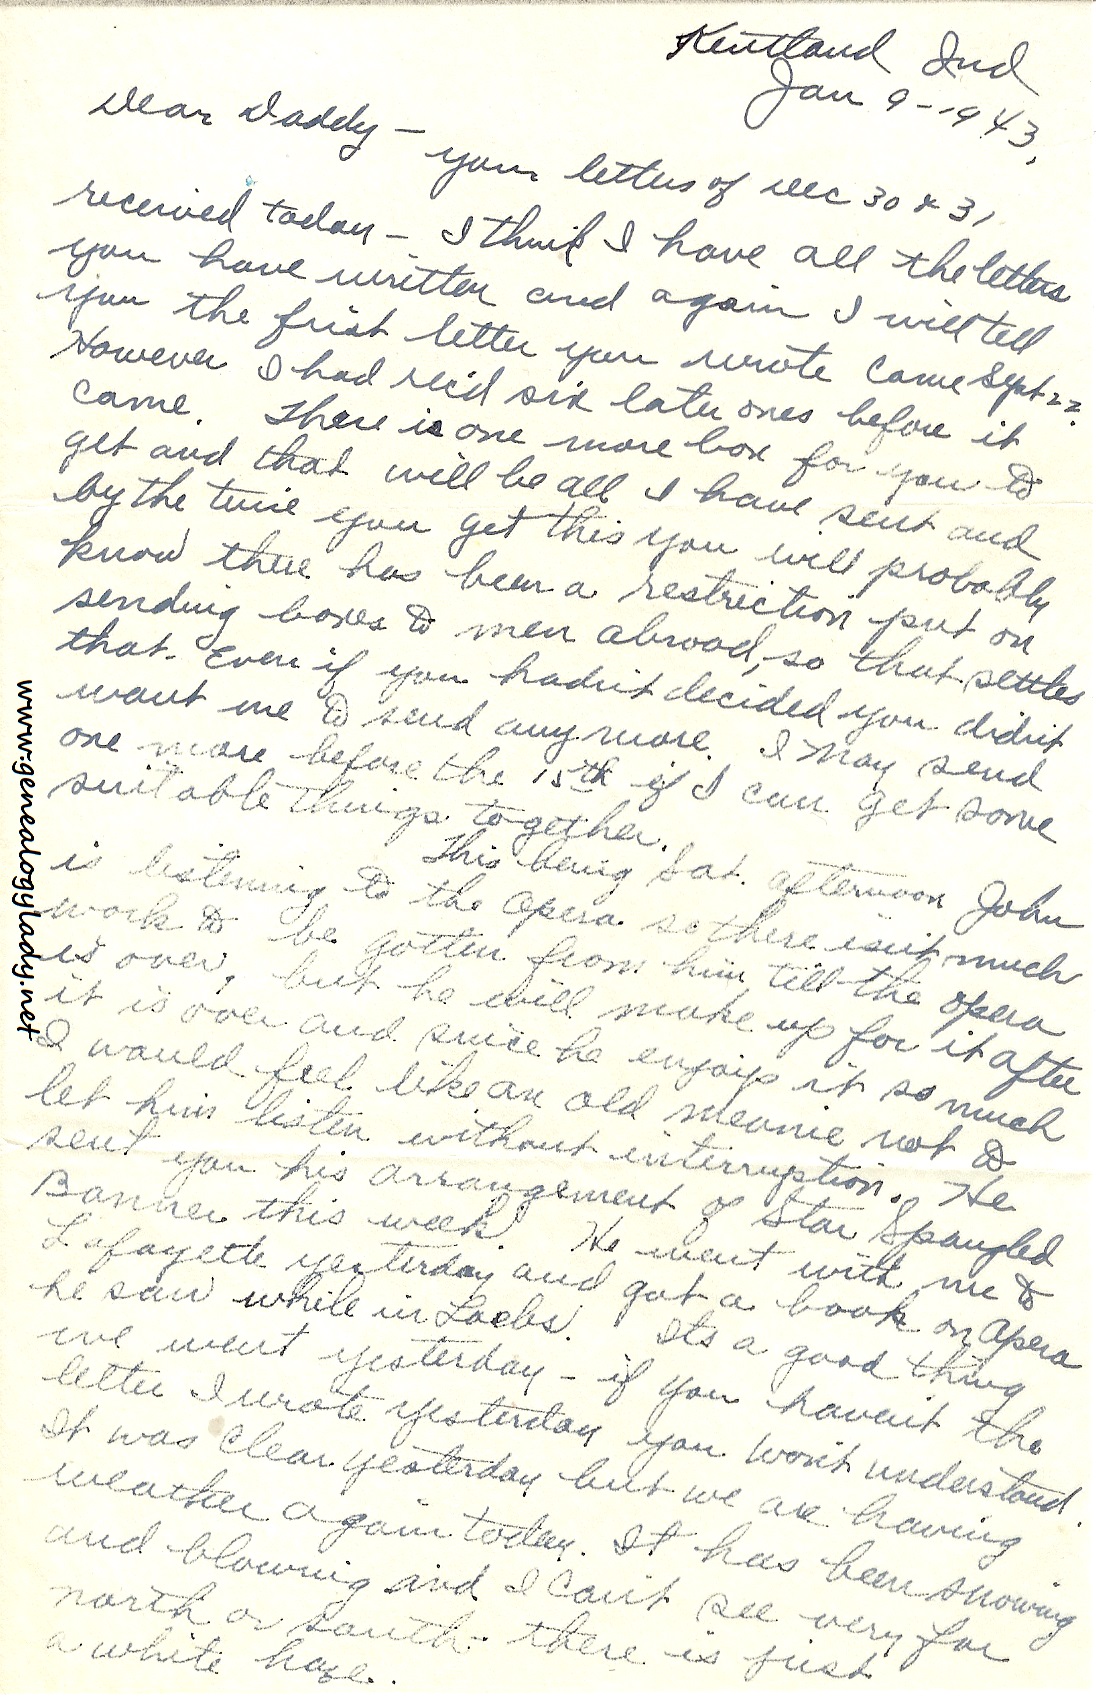 Kentland Ind
Jan 9-1943.
Dear Daddy -
your letters of Dec 30 & 31
received today - I think I have all the letters
you have written and again I will tell
you the first letter you wrote came Sept 22.
However I had rec'd six later ones before it
came. There is one more box for you to
get and that will be all I have sent and
by the time you get this you will probably
know there has been a restriction put on
sending boxes to men abroad, so that settles
that. Even if you hadn't decided you didn't
want me to send anymore. I may send
one more before the 15th if I can get some
suitable things together.
This being Sat. afternoon John
is listening to the opera so there isn't much
work to be gotten from him till the opera
is over, but he will make up for it after
it is over and since he enjoys it so much
I would feel like an old meanie not to
let him listen without interruption. He
sent you his arrangement of Star Spangled
Banner this week. He went with me to
Lafayette yesterday and got a book on opera
he saw while in Loebs. Its a good thing
we went yesterday - if you haven't the
letter I wrote yesterday you won't understand.
It was clear yesterday but we are having
weather again today. It has been snowing
and blowing and I can't see very far
north or south - there is just
a white haze.
www.genealogylady.net